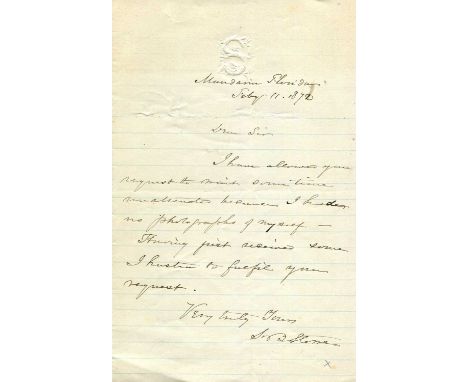 S
Mandarin Florida
Feby 11. 1872
Dear Sir
I have allowed your
request to wait sometime
unattended because I had
no photographs of myself —
Having just received some
I hasten to fulfil your
request.
Very truly Yours
H B Stowe
x